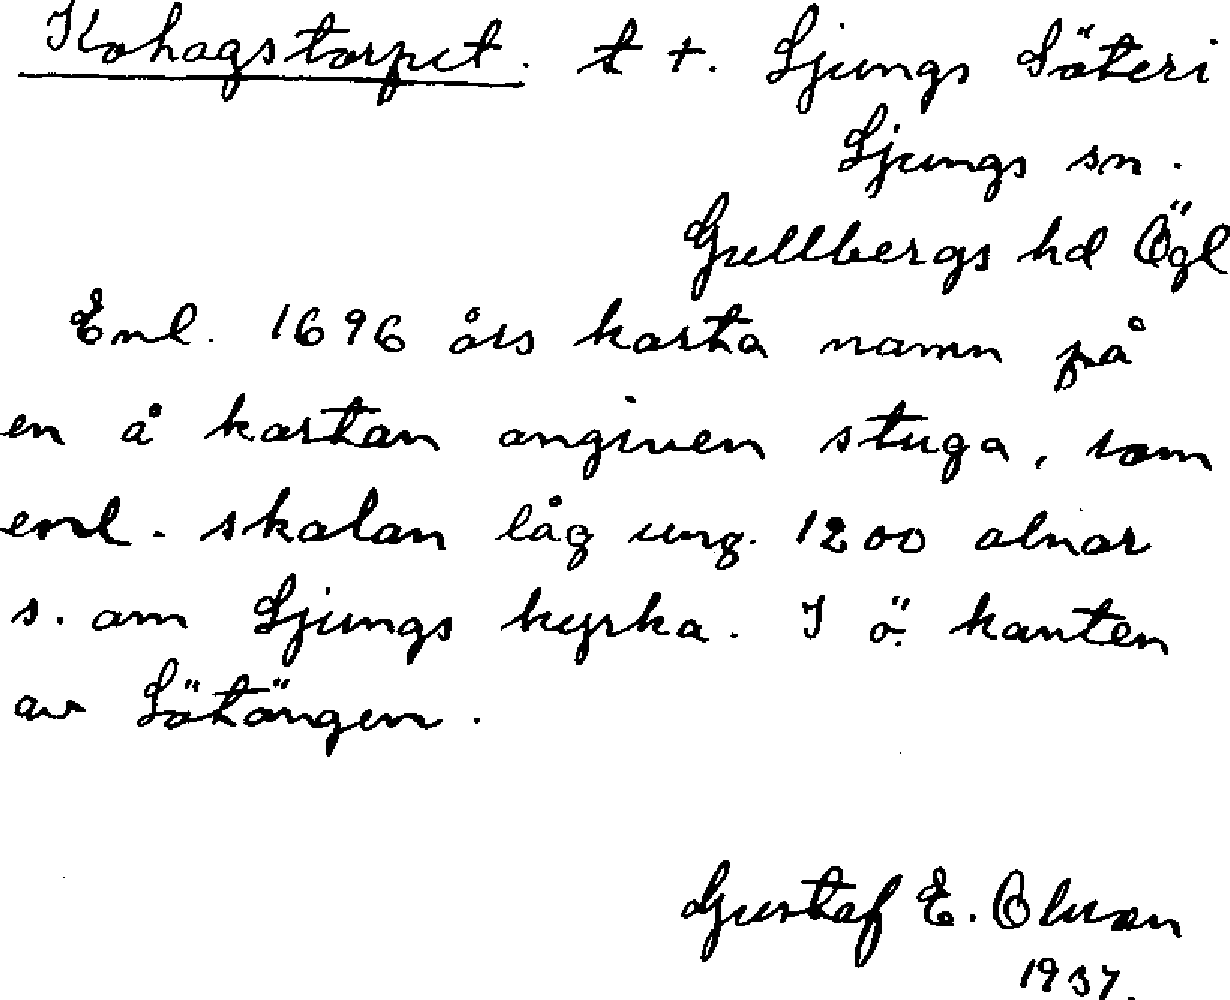 Kohagstorpet. t +. Ljungs Säteri
Ljungs sn.
Gullbergs hd Ögl
Enl. 1696 års karta namn på
en å kartan angiven stuga, som
enl. skalan låg ung. 1200 alnar
s. om Ljungs kyrka. I ö. kanten
av Sötängen.
Gustaf E. Olsson
1937.